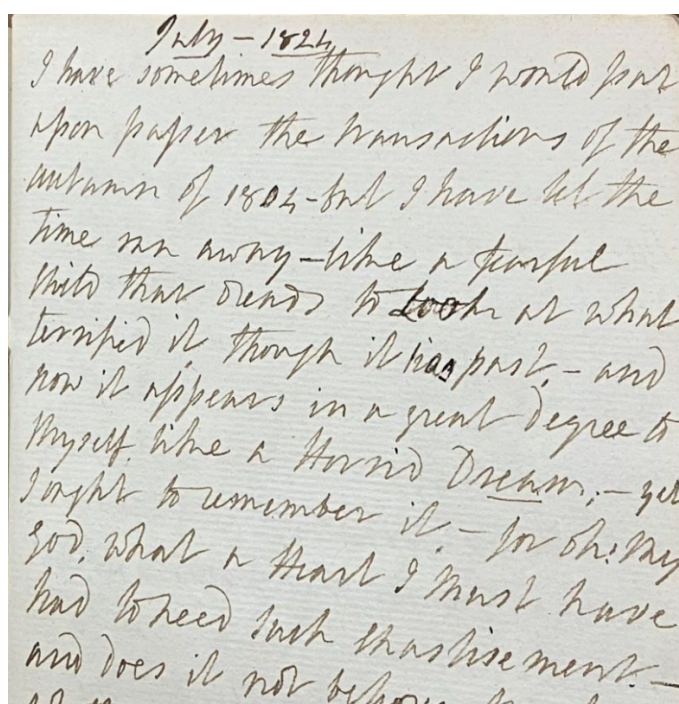 July - 1824
I have sometimes thought I would put
upon paper the transactions of the
autumn of 1804 - but I have let the
time run away - like a fearful
child that dreads to look at what
terrified it though it has past, - and
now it appears in a great degree to
myself like a Horrid Dream, - yet
I ought to remember it - for oh! my
God, what a Heart I must have
had to need such chastisement. -
and does it not behove